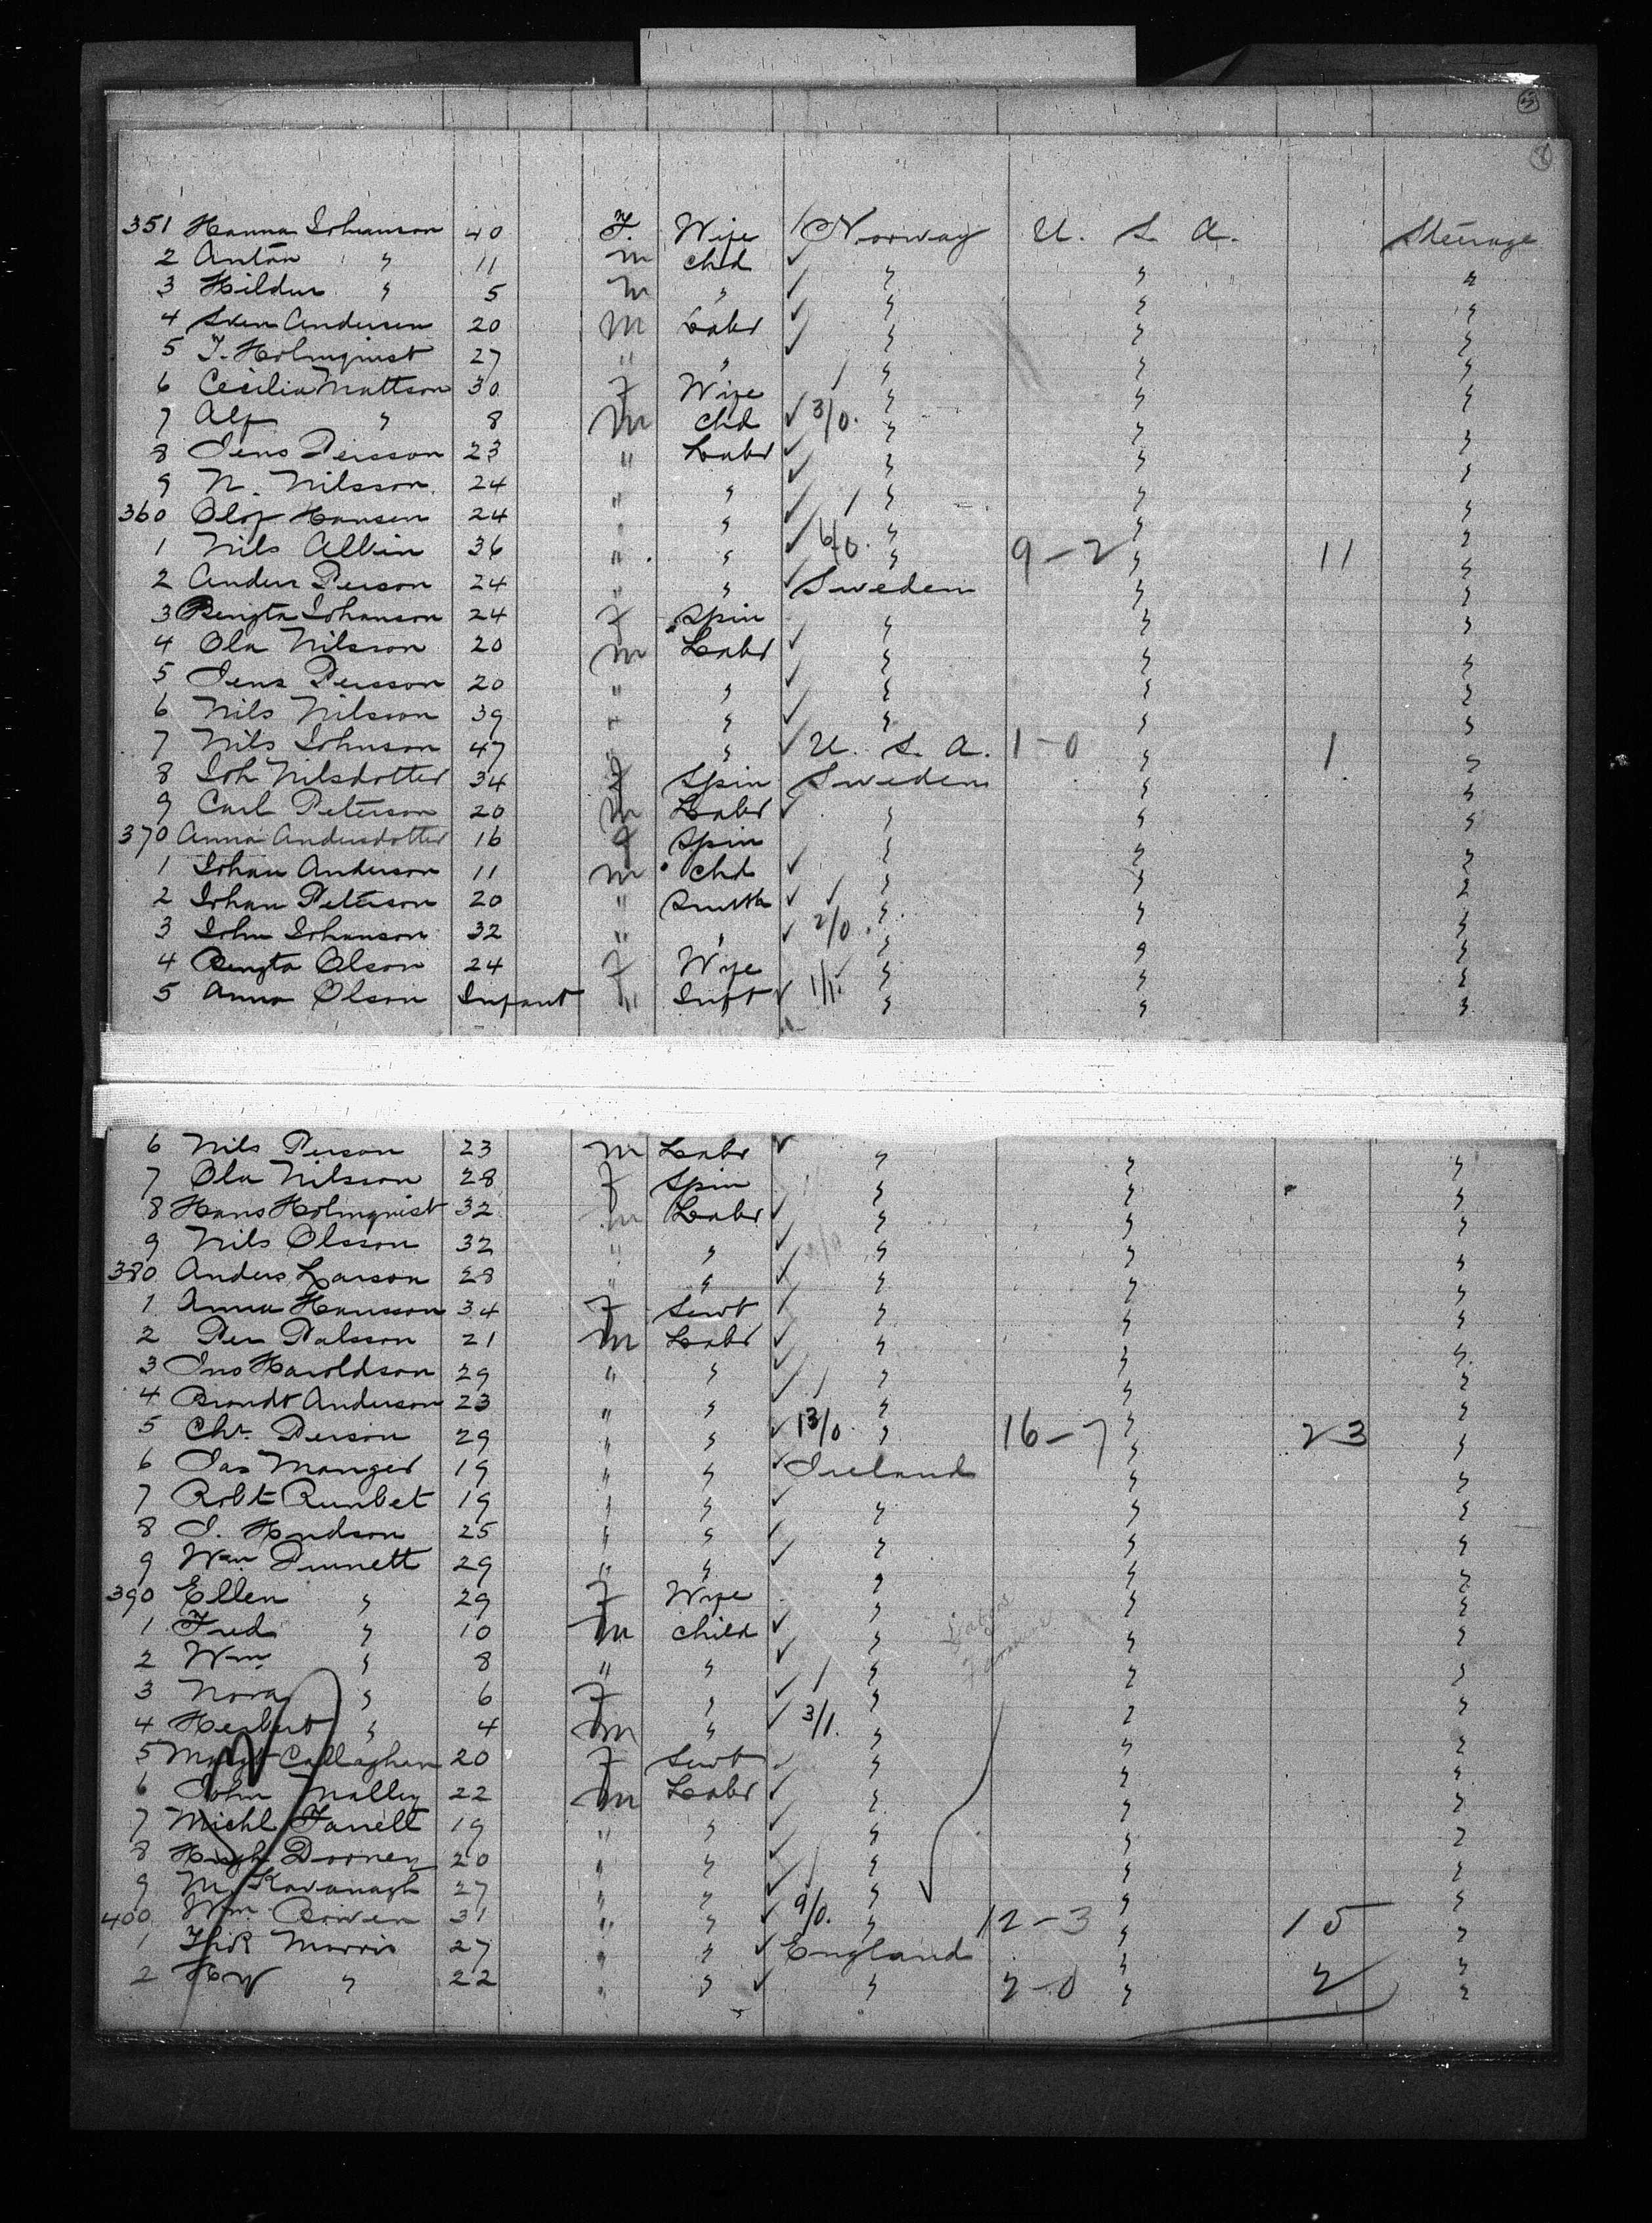 351 Hanna Johanson 40 F. Wife Norway U. S. A. Steerage
2 Anton " 11 m chd " " "
3 Hildur " 5 m " " " "
4 Sven Andersen 20 m Labr " " "
5 J. Holmquist 27 " " " " "
6 Cecilia Mattson 30 F Wife " " "
7 Alf " 8 m chd 3/0. " " "
8 Jens Persson 23 " Labr " " "
9 N. Nilsson 24 " " " " "
360 Olof Hansen 24 " " " " "
1 Nils Albin 36 " " 6/0. " 9-2 " 11 "
2 Anders Person 24 " " Sweden " "
3 Bengta Johanson 24 F Spin " " "
4 Ola Nilsson 20 m Labr " " "
5 Jens Persson 20 " " " " "
6 Nils Nilsson 39 " " " " "
7 Nils Johnson 47 " " U. S. A. 1-0 " 1 "
8 Joh Nilsdotter 34 F Spin Sweden " "
9 Carl Peterson 20 m Labr " " "
370 Anna Andersdotter 16 F Spin " " "
1 Johan Anderson 11 m chd " " "
2 Johan Peterson 20 " Smith " " "
3 John Johanson 32 " " 2/0. " " "
4 Bengta Olson 24 F Wife " " "
5 Anna Olson Infant " Inft 1/1. " " "
6 Nils Person 23 m Labr " " "
7 Ola Nilsson 28 F Spin " " "
8 Hans Holmquist 32 m Labr " " "
9 Nils Olsson 32 " " " " "
380 Anders Larson 28 " " " " "
1 Anna Hansson 34 F Servt " " "
2 Per Palsson 21 m Labr " " "
3 Jno Haroldson 29 " " " " "
4 Brondt Anderson 23 " " " " "
5 Chr. Person 29 " " 13/0. " 16-7 " 23 "
6 Jas Manger 19 " " Ireland " "
7 Robt Runbet 19 " " " " "
8 J. Hudson 25 " " " " "
9 Wm Punnett 29 " " " " "
390 Ellen " 29 F Wife " " "
1 Fred " 10 m child " " "
2 Wm " 8 " " " " "
3 Nora " 6 F " " " "
4 Herbert " 4 m " 3/1. " " "
5 Margt Callaghan 20 F Servt " " "
6 John Malley 22 m Labr " " "
7 Michl Farrell 19 " " " " "
8 Hugh Dorney 20 " " " " "
9 My Kavanagh 27 " " " " "
400 Wm Bowen 31 " " 9/0. " 12-3 " 15 "
1 Morris 27 " " England " "
2 " 22 " " " 2-0 " 2 "